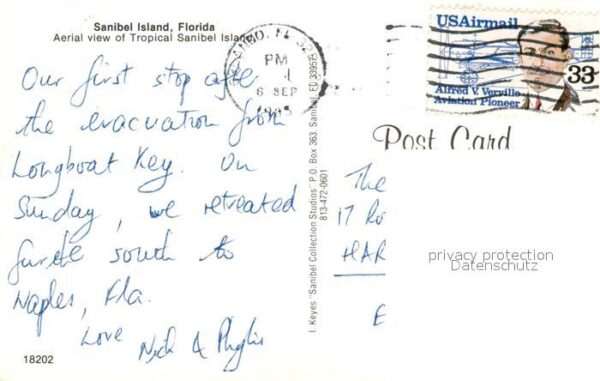 Sanibel Island, Florida
Aerial view of Tropical Sanibel Island
Our first stop after
the evacuation from
Longboat Key. On
Sunday, we retreated
furthe south to
Naples, Fla.
Love
Nick & Phyllis
18202
I. Keyes "Sanibel Collection Studios" P.O. Box 363, Sanibel, FL 33957
813-472-0601
FL 32
PM
6 SEP
1985
USAirmail
33
Alfred V. Verville
Aviation Pioneer
Post Card
The
17 Ro
HAR
E
privacy protection
Datenschutz